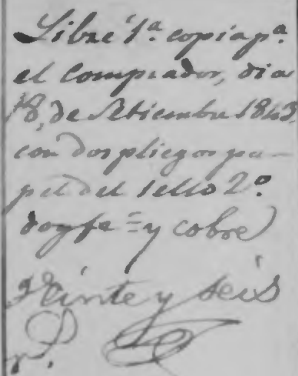 Libré 1ª copia pª
el Comprador, dia
18, de Setiembre 1843,
con dos pliegos pa-
pel del sello 2º
doy fe = y cobre
Veinte y seis